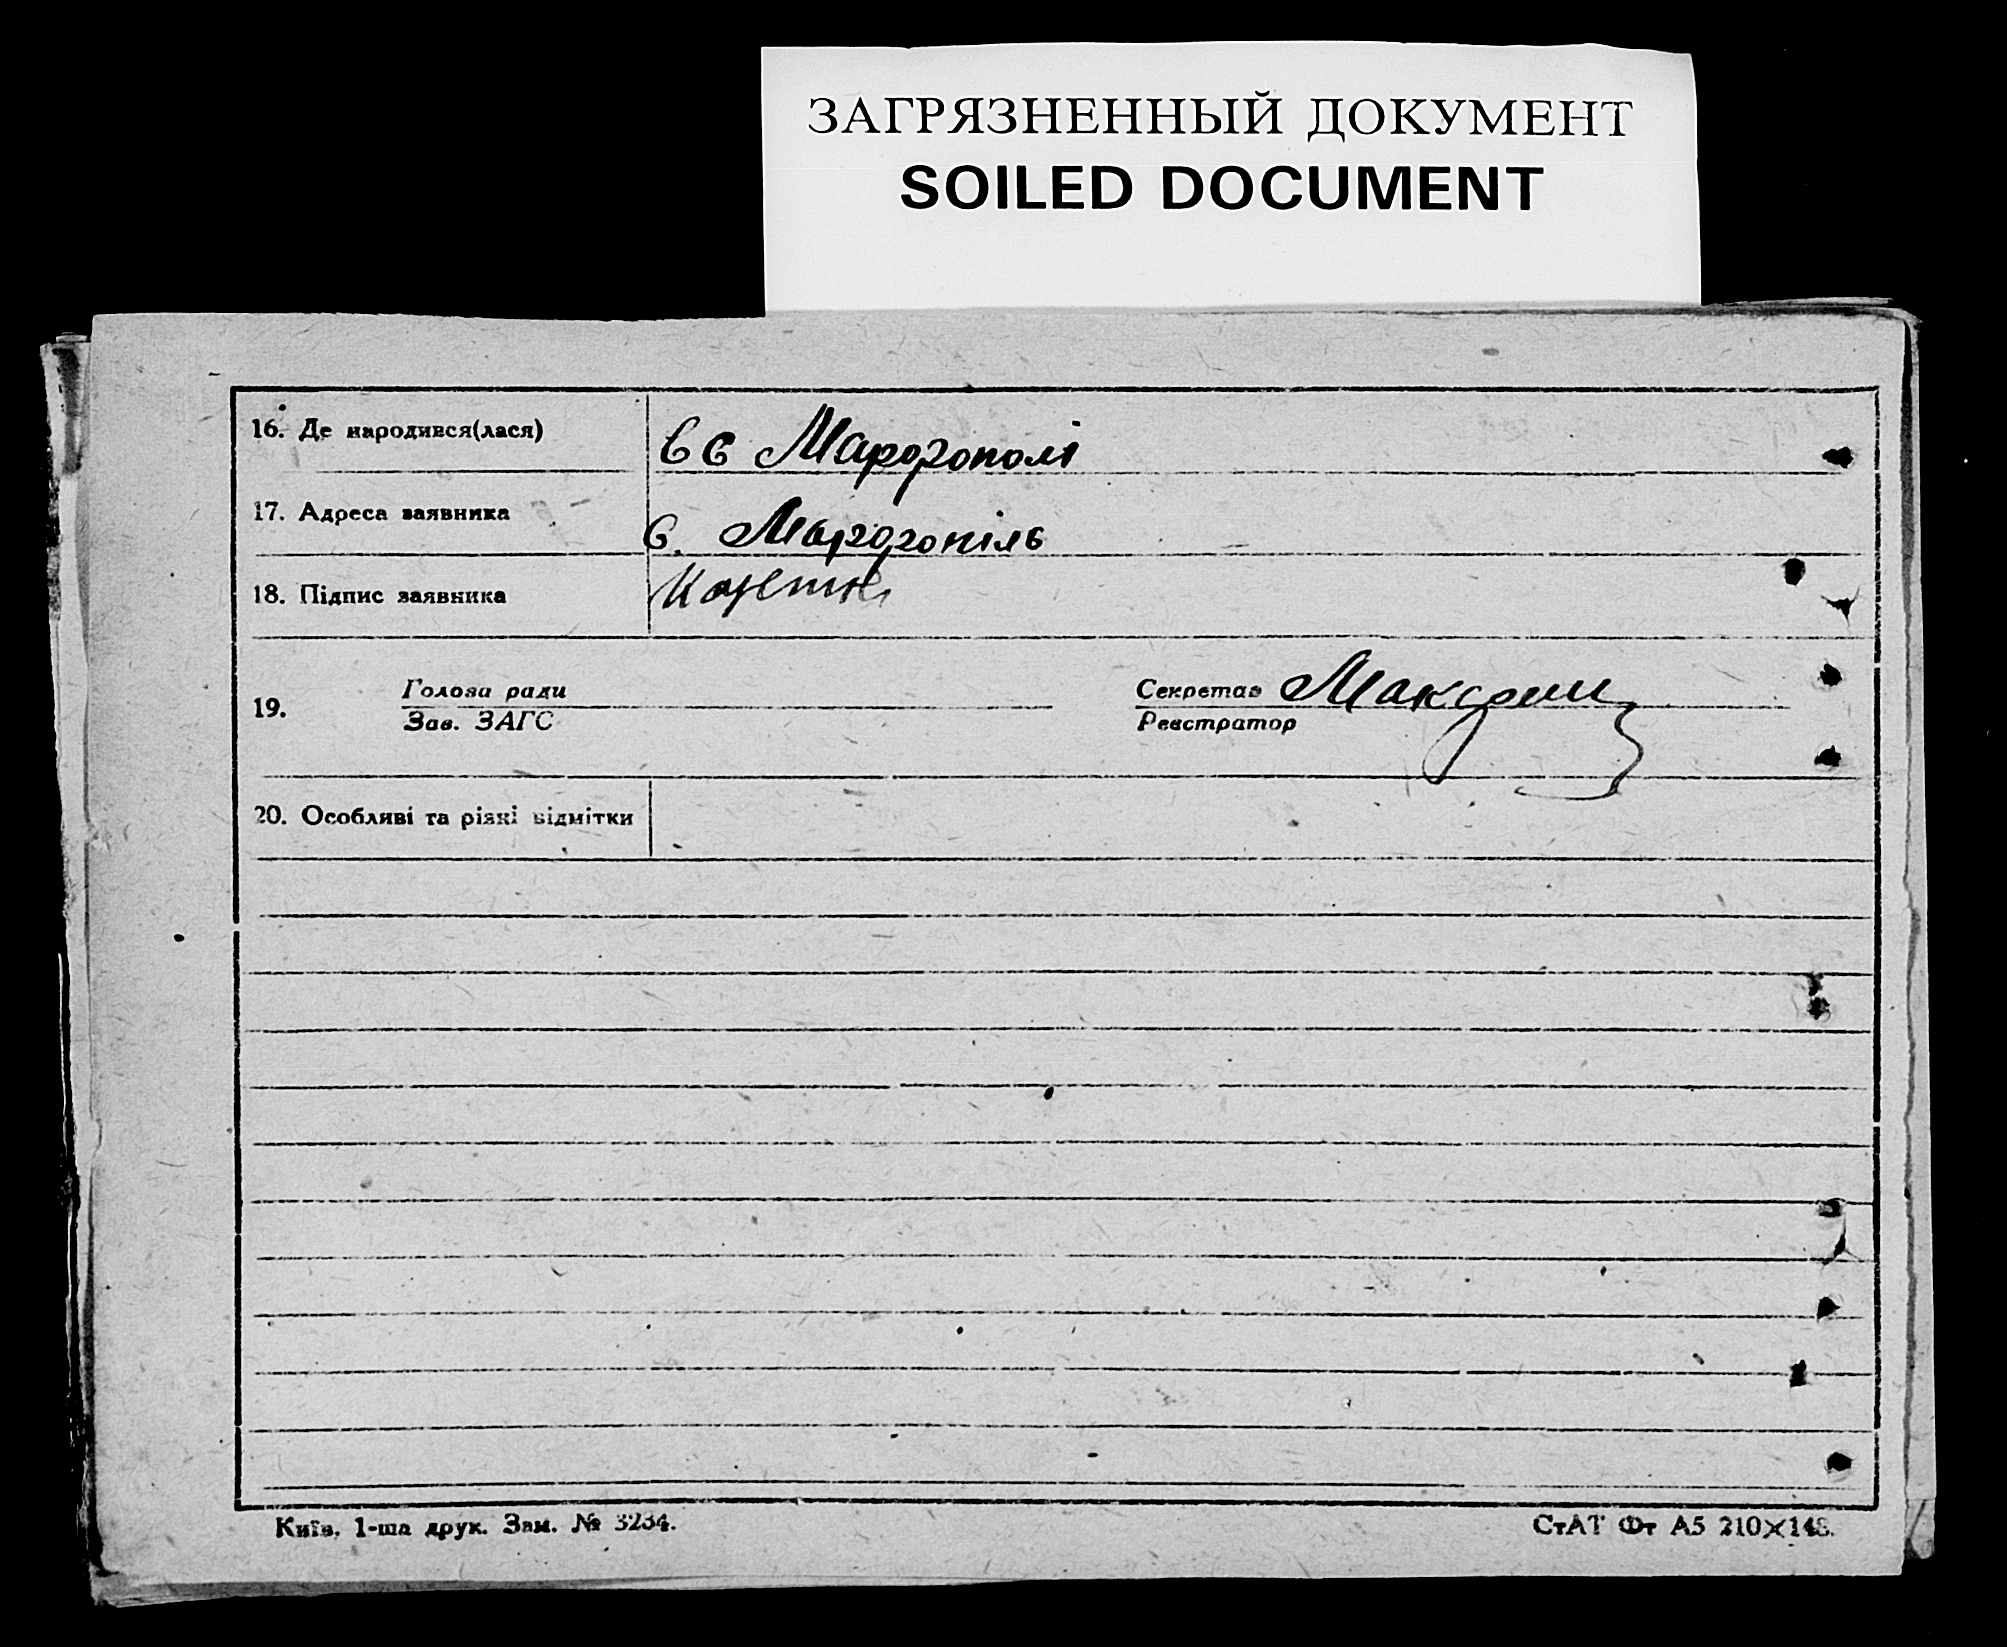 ЗАГРЯЗНЕННЫЙ ДОКУМЕНТ
SOILED DOCUMENT
16. Де народився(лася)
в с Мардгополі
17. Адреса заявника
с.
18. Підпис заявника
19. Голова ради
Зав. ЗАГС
Секретар
Реєстратор
20. Особливі та різкі відмітки
Київ, 1-ша друк. Зам. № 3234.
СтАТ Фт А5 210×148.